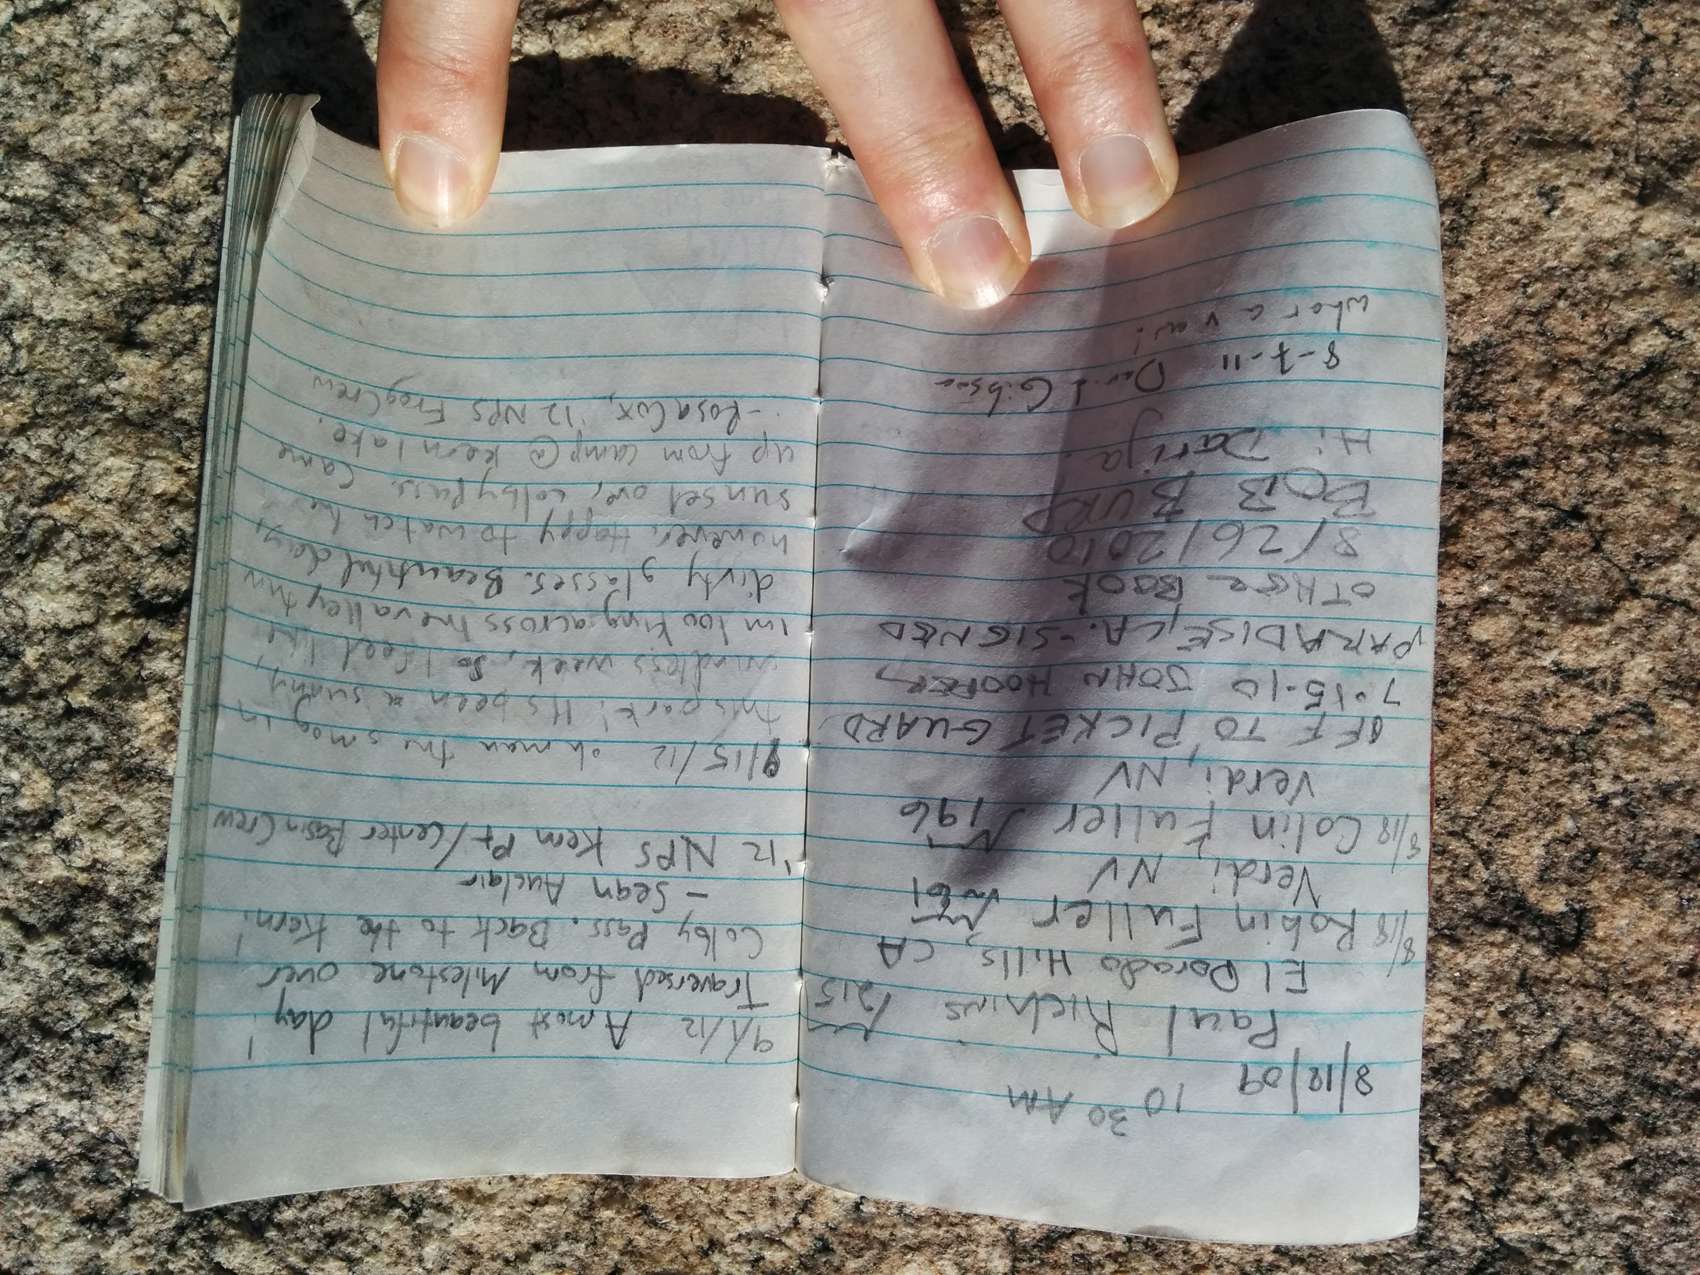 8/18/09 10 30 AM
Paul Richins 1/215
El Dorado Hills, CA
8/18 Robin Fuller
Verdi, NV
8/18 Colin Fuller 196
Verdi, NV
OFF TO PICKET GUARD
7-15-10 JOHN HOOPER,
PARADISE, CA. - SIGNED
OTHER BOOK
8/26/2010
BOB BURD
Hi Darija
8-7-11 David Gibson
what a view!
9/1/12 A most beautiful day!
Traversed from Milestone over
Colby Pass. Back to the Kern!
- Sean Auclair
'12 NPS Kern Pt/Center Basin Crew
9/15/12 oh man the smog in
this park! It's been a sunny,
windless week, so I feel like
im looking across the valley thru
dirty glasses. Beautiful day,
however. Happy to watch the
sunset over colby Pass. Came
up from camp @ kern lake.
- Rosa Cox, '12 NPS Frog Crew